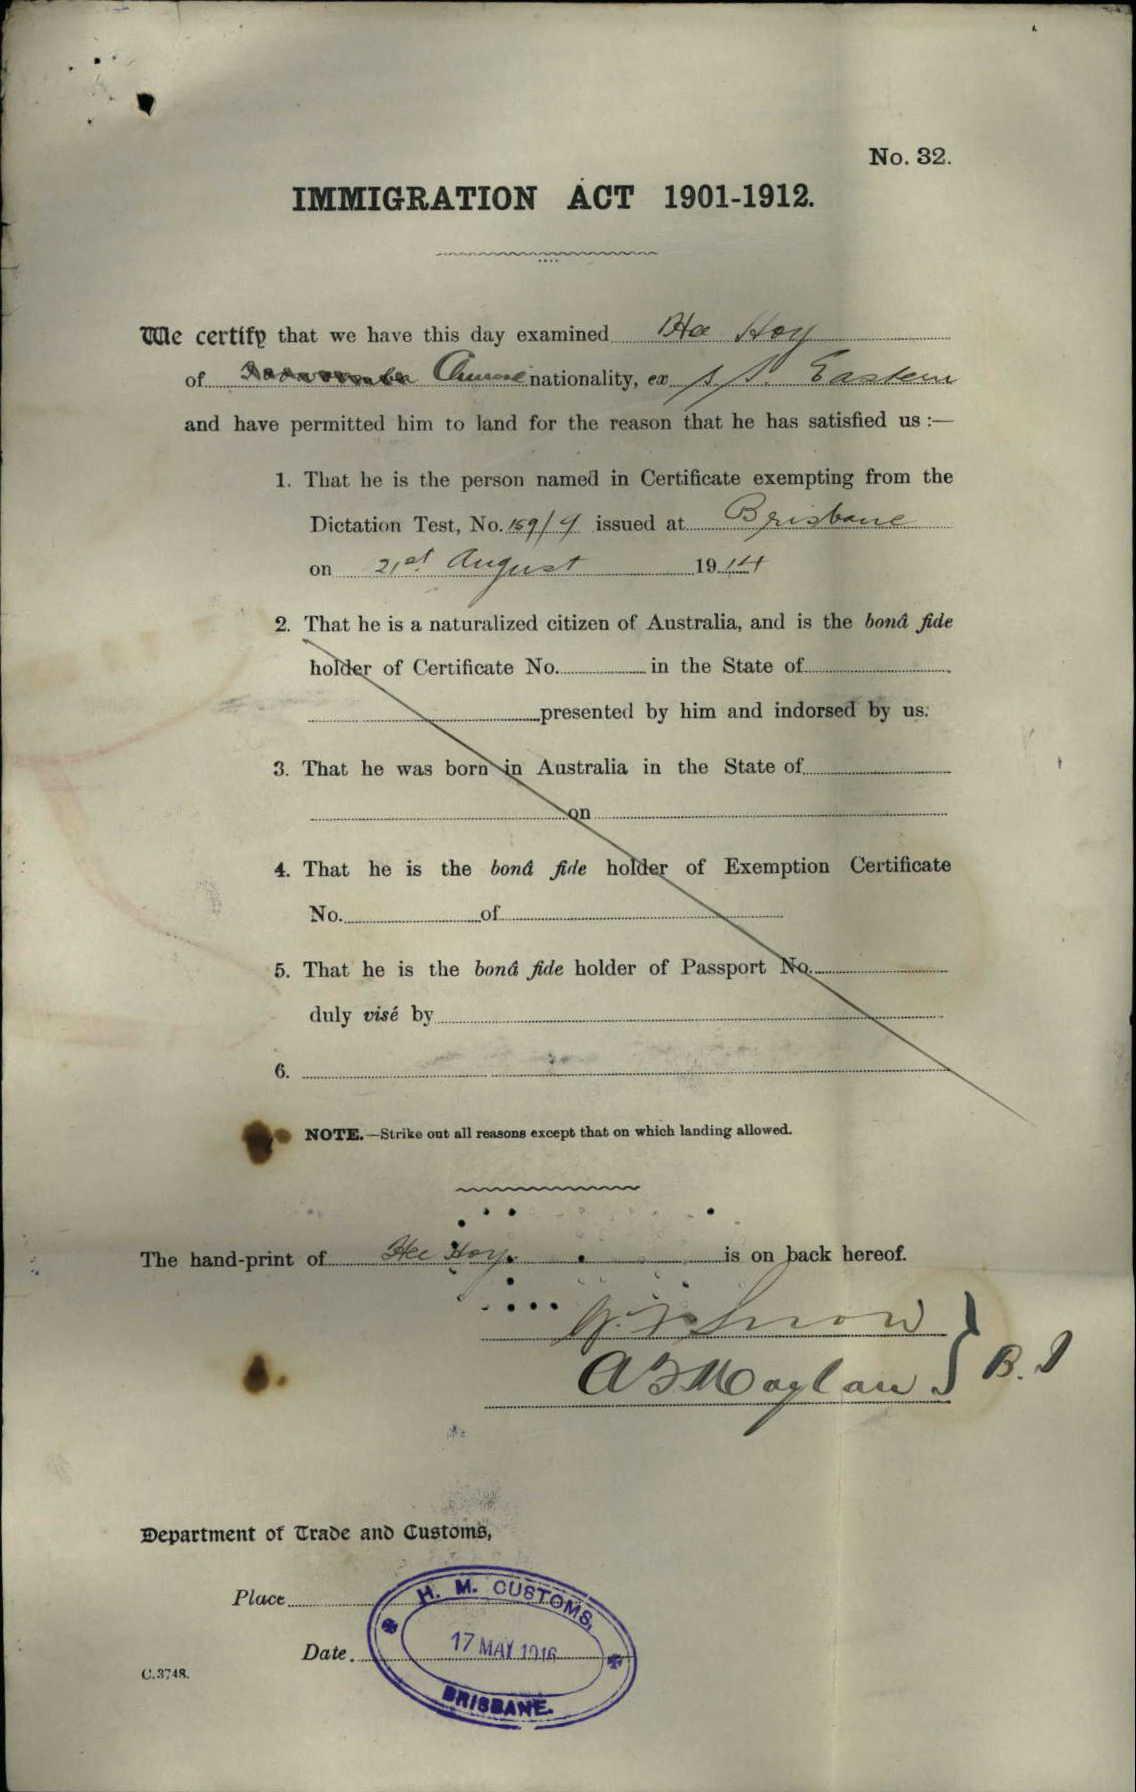 No. 32.
IMMIGRATION ACT 1901-1912.
We certify that we have this day examined Hee Hoy
of Chinese nationality, ex s/s. Eastern
and have permitted him to land for the reason that he has satisfied us :—
1. That he is the person named in Certificate exempting from the
Dictation Test, No. 159/9 issued at Brisbane
on 21st August 1914
2. That he is a naturalized citizen of Australia, and is the bonâ fide
holder of Certificate No. in the State of
presented by him and indorsed by us.
3. That he was born in Australia in the State of
on
4. That he is the bonâ fide holder of Exemption Certificate
No. of
5. That he is the bonâ fide holder of Passport No.
duly visé by
6.
NOTE.—Strike out all reasons except that on which landing allowed.
The hand-print of Hee Hoy is on back hereof.
Snow
B. I
Department of Trade and Customs,
Place
H. M. CUSTOMS,
Date.
17 MAY 1916
BRISBANE.
C.3748.